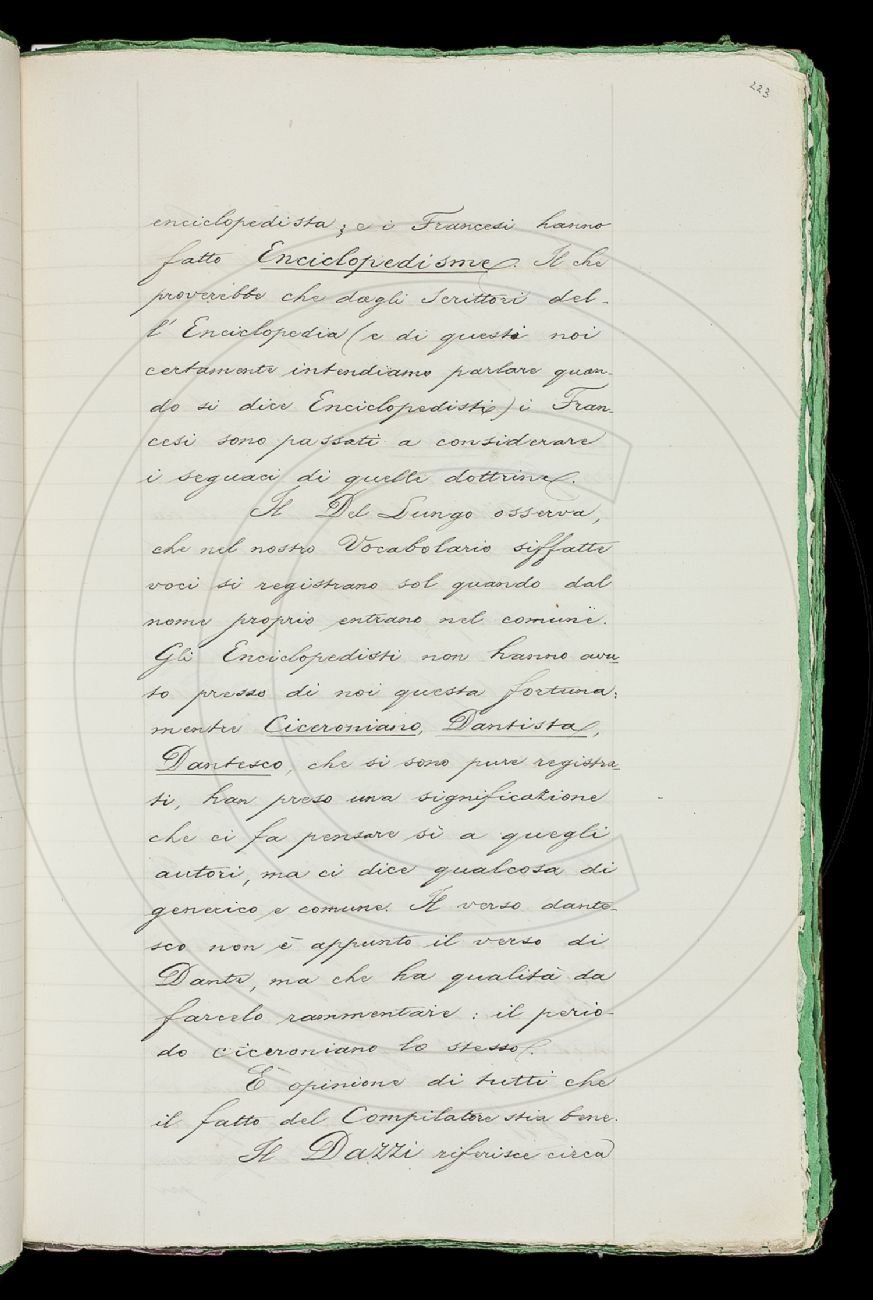 223
enciclopedista; e i Francesi hanno
fatto Enciclopedisme. Il che
proverebbe che dagli Scrittori del-
l'Enciclopedia (e di questi noi
certamente intendiamo parlare quan-
do si dice Enciclopedisti) i Fran-
cesi sono passati a considerare
i seguaci di quelle dottrine.
Il Del Lungo osserva,
che nel nostro Vocabolario siffatte
voci si registrano sol quando dal
nome proprio entrano nel comune.
Gli Enciclopedisti non hanno avu-
to presso di noi questa fortuna;
mentre Ciceroniano, Dantista,
Dantesco, che si sono pure registra-
ti, han preso una significazione
che ci fa pensare sì a quegli
autori, ma ci dice qualcosa di
generico e comune. Il verso dante-
sco non è appunto il verso di
Dante, ma che ha qualità da
farcelo rammentare: il perio-
do ciceroniano lo stesso.
È opinione di tutti che
il fatto del Compilatore stia bene.
Il Dazzi riferisce circa